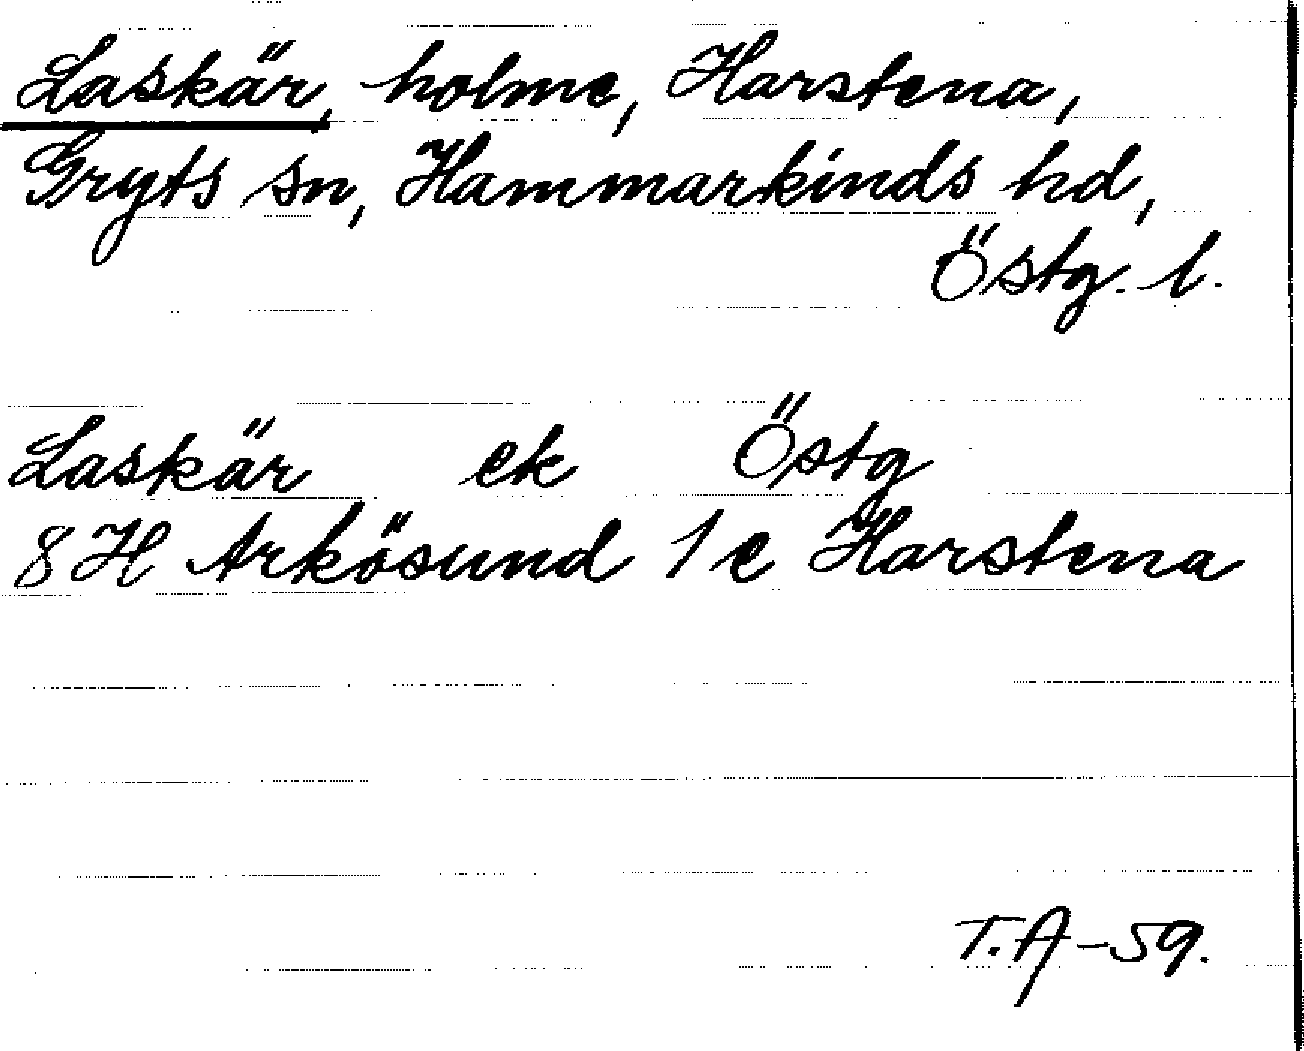 Laskär, holme, Harstena,
Gryts sn, Hammarkinds hd,
Östg. l.
Laskär ek Östg
8 H Arkösund 1 c Harstena
T.A-59.